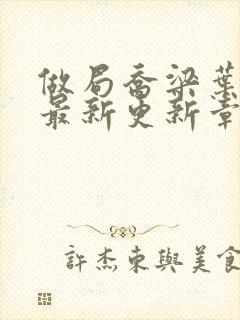 做局喬梁葉
最新更新章
許杰東與美食